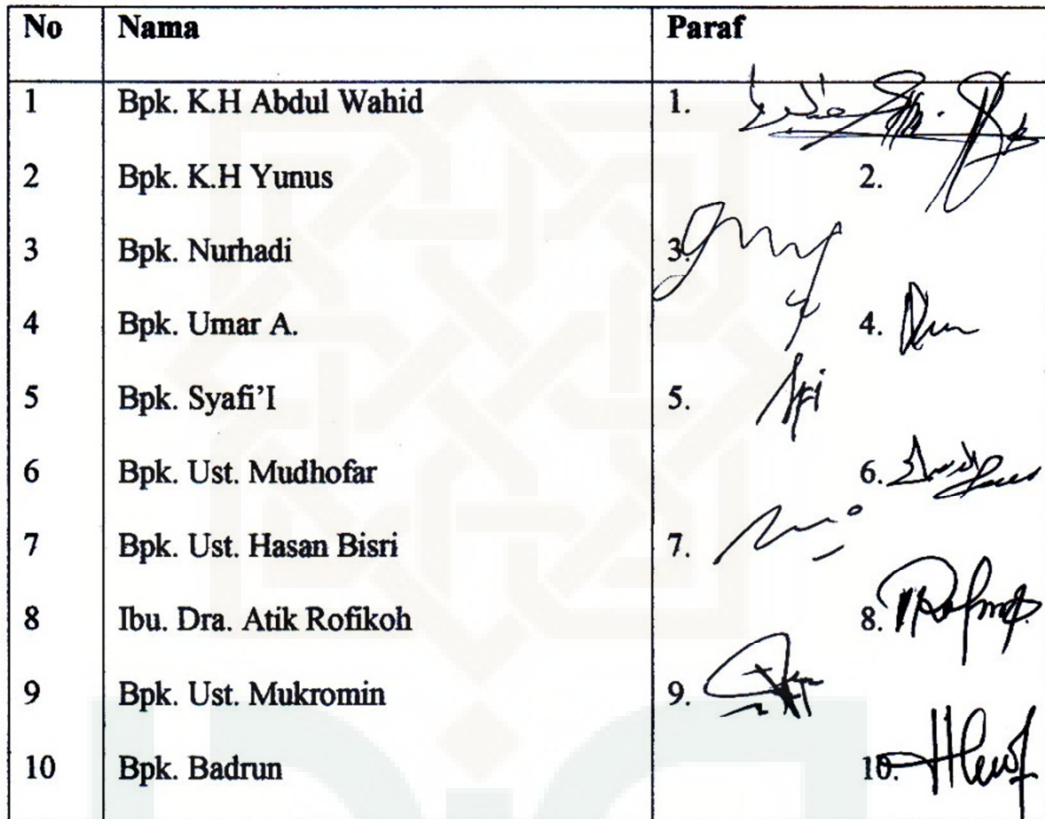 No Nama Paraf
1 Bpk. K.H Abdul Wahid 1.
2 Bpk. K.H Yunus 2.
3 Bpk. Nurhadi 3.
4 Bpk. Umar A. 4.
5 Bpk. Syafi’I 5.
6 Bpk. Ust. Mudhofar 6.
7 Bpk. Ust. Hasan Bisri 7.
8 Ibu. Dra. Atik Rofikoh 8.
9 Bpk. Ust. Mukromin 9.
10 Bpk. Badrun 10.